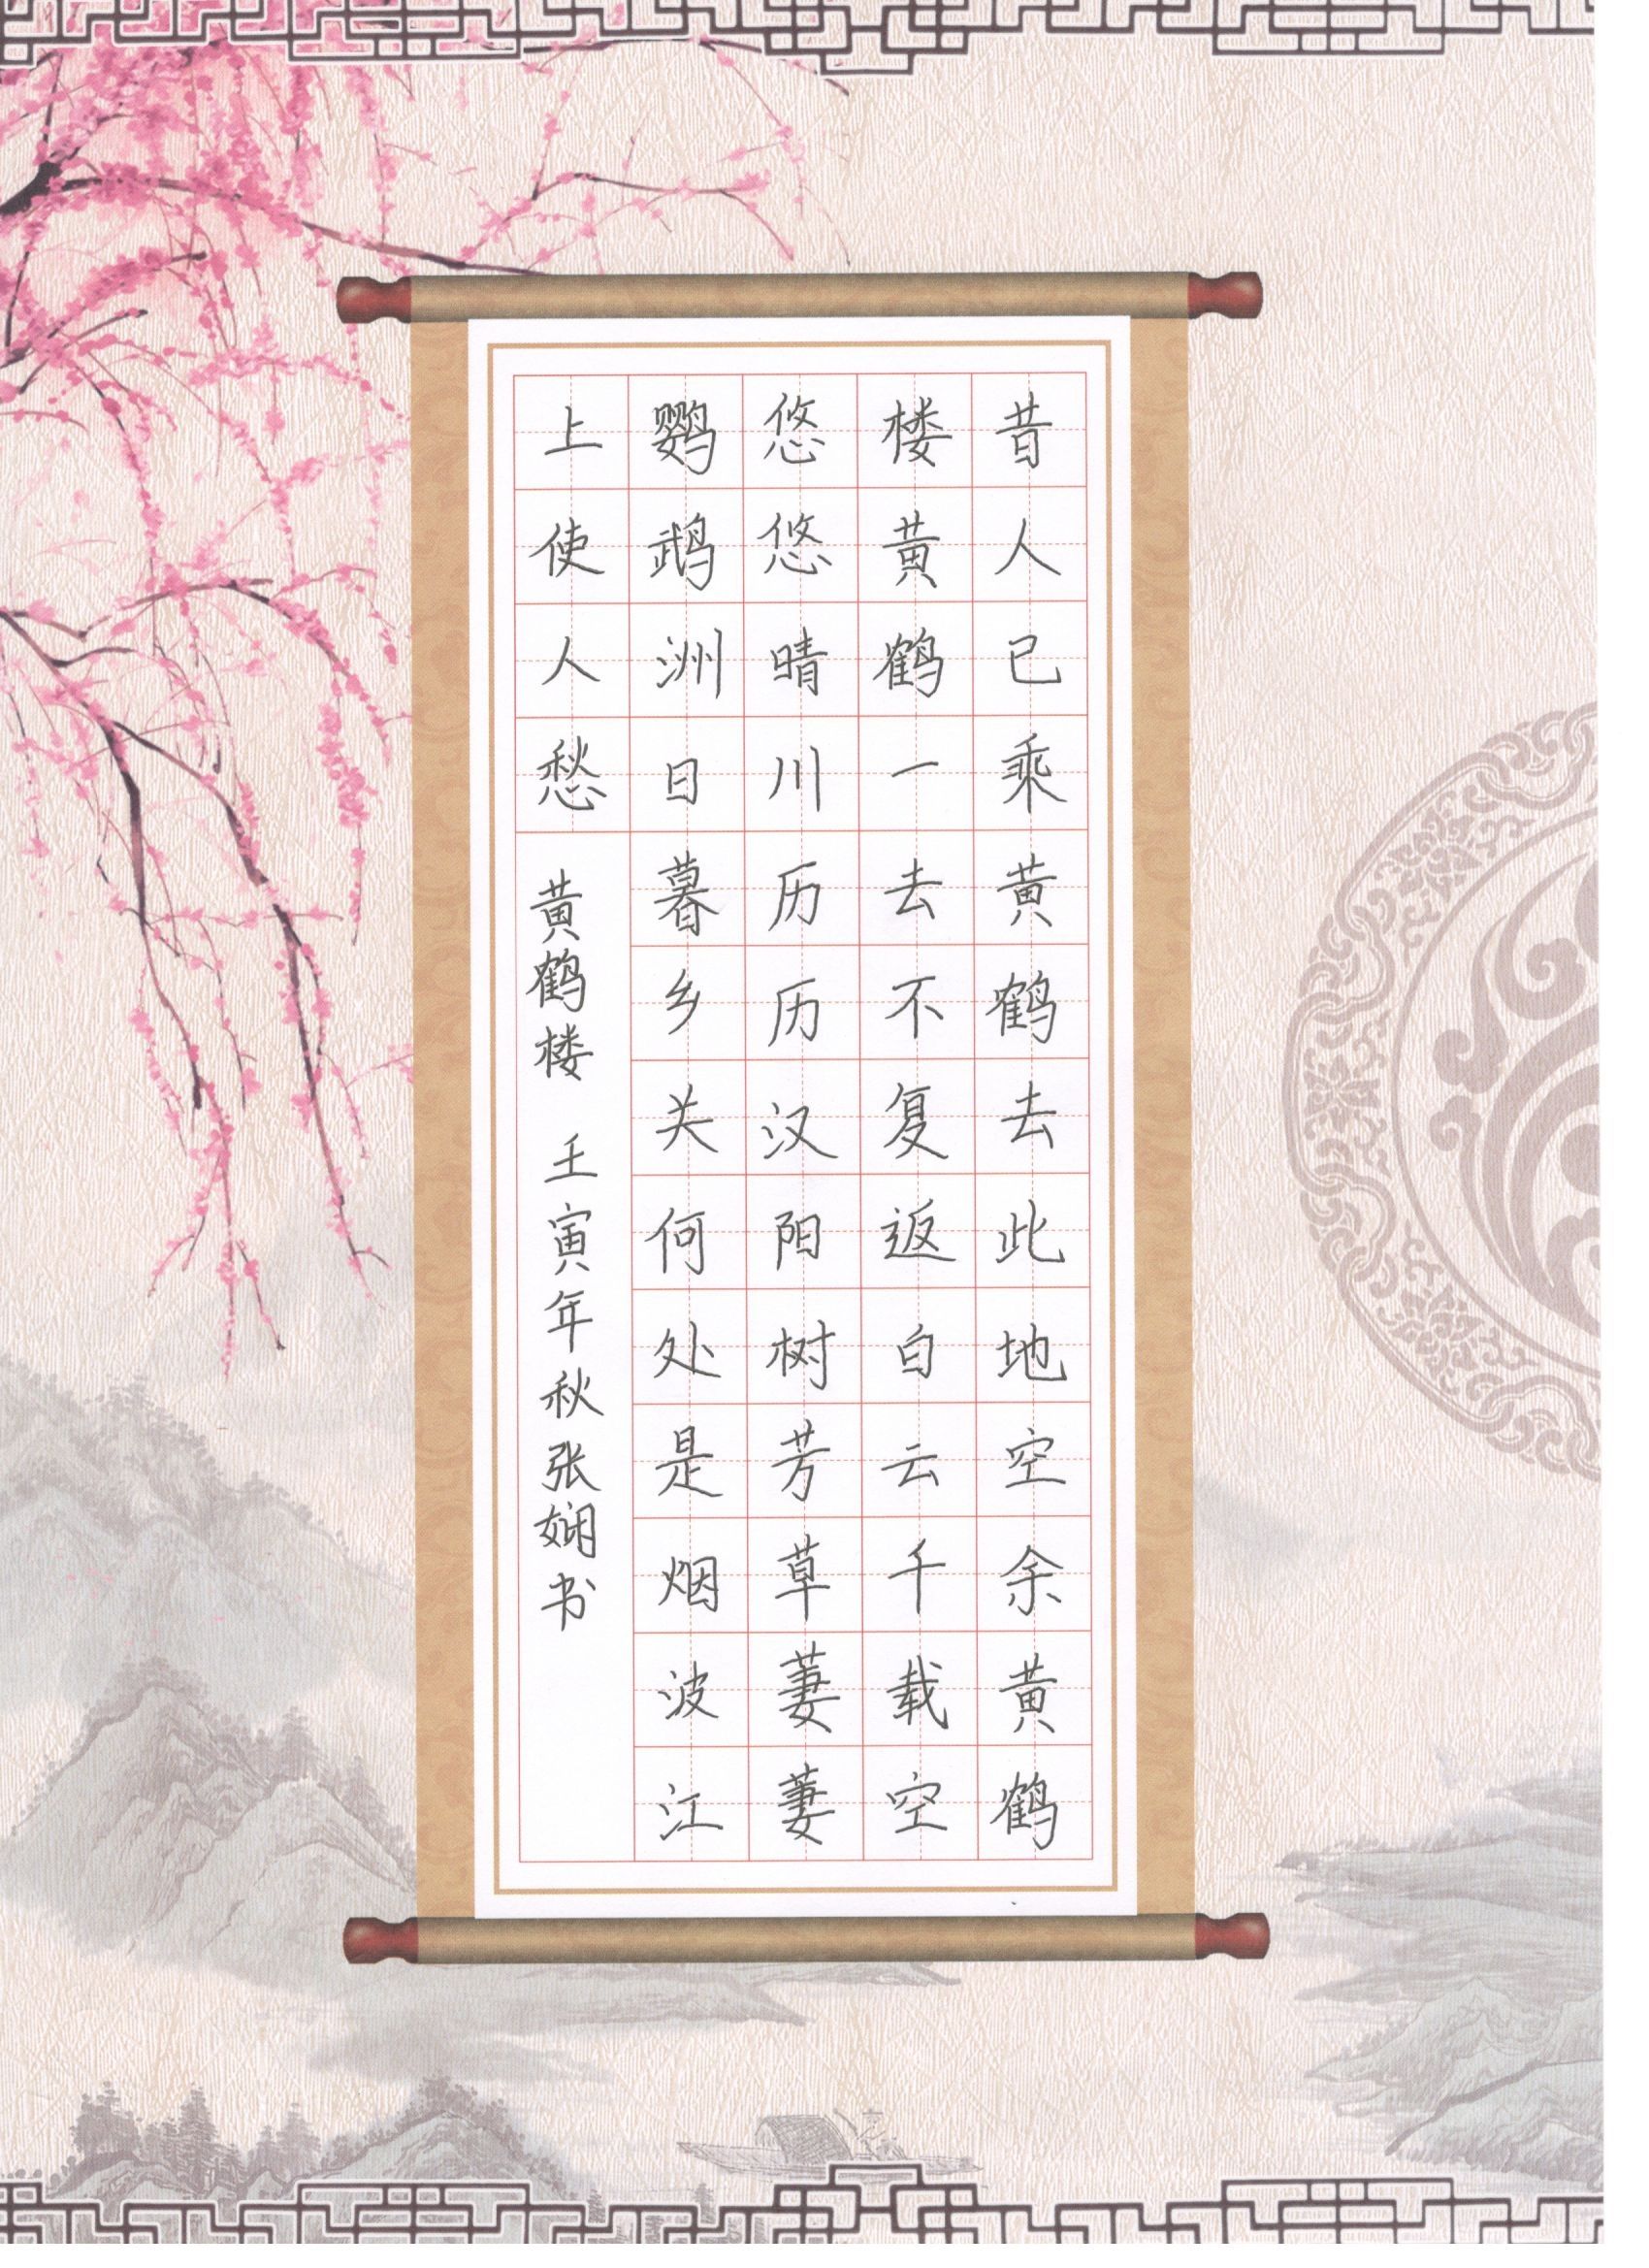 昔人已乘黄鹤去此地空余黄鹤
楼黄鹤一去不复返白云千载空
悠悠晴川历历汉阳树芳草萋萋
鹦鹉洲日暮乡关何处是烟波江
上使人愁
黄鹤楼 壬寅年秋张娴书